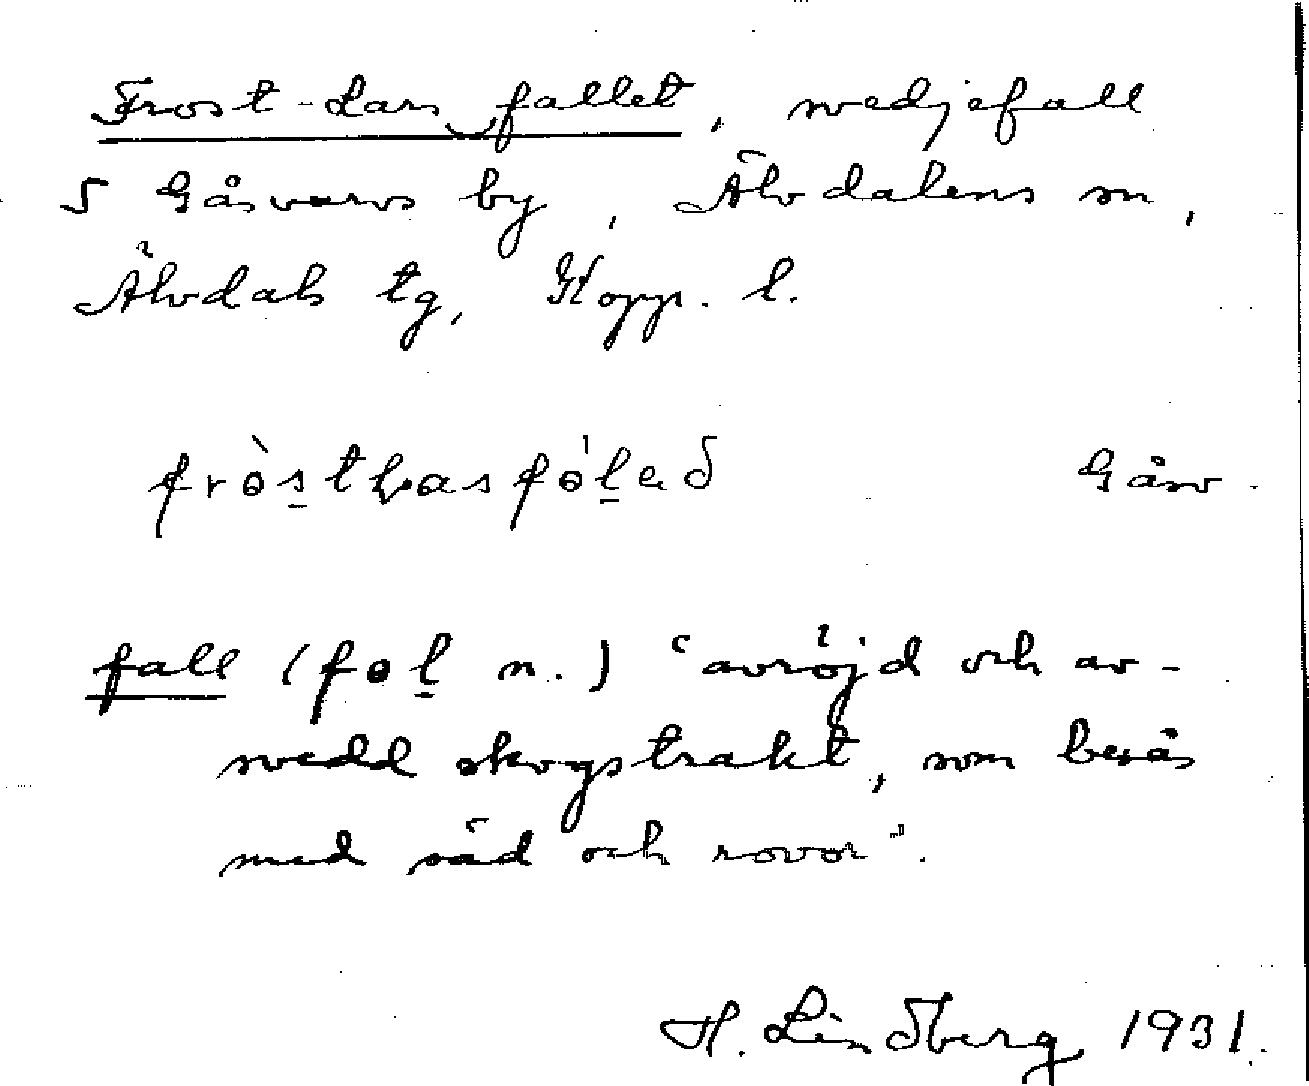 Frost-Lars fallet, svedjefall
S Gåsvarvs by, Älvdalens sn,
Älvdals tg, Kopp. l.
Gåsv.
fall (fol n.) "avröjd och av-
svedd skogstrakt, som besås
med säd och rovor".
H. Lindberg 1931.